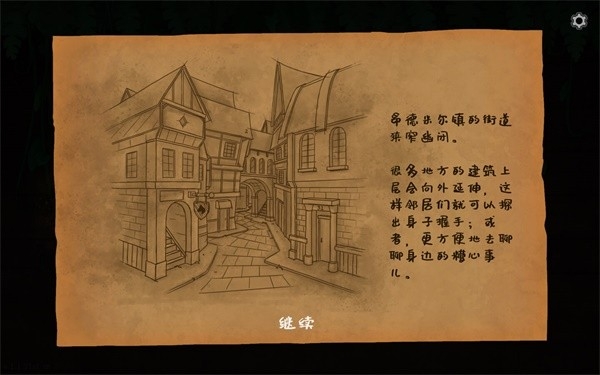 帛德乐尔镇的街道
狭窄幽闭。
很多地方的建筑上
层会向外延伸，这
样邻居们就可以探
出身子握手；或
者，更方便地去聊
聊身边的糟心事
儿。
继续